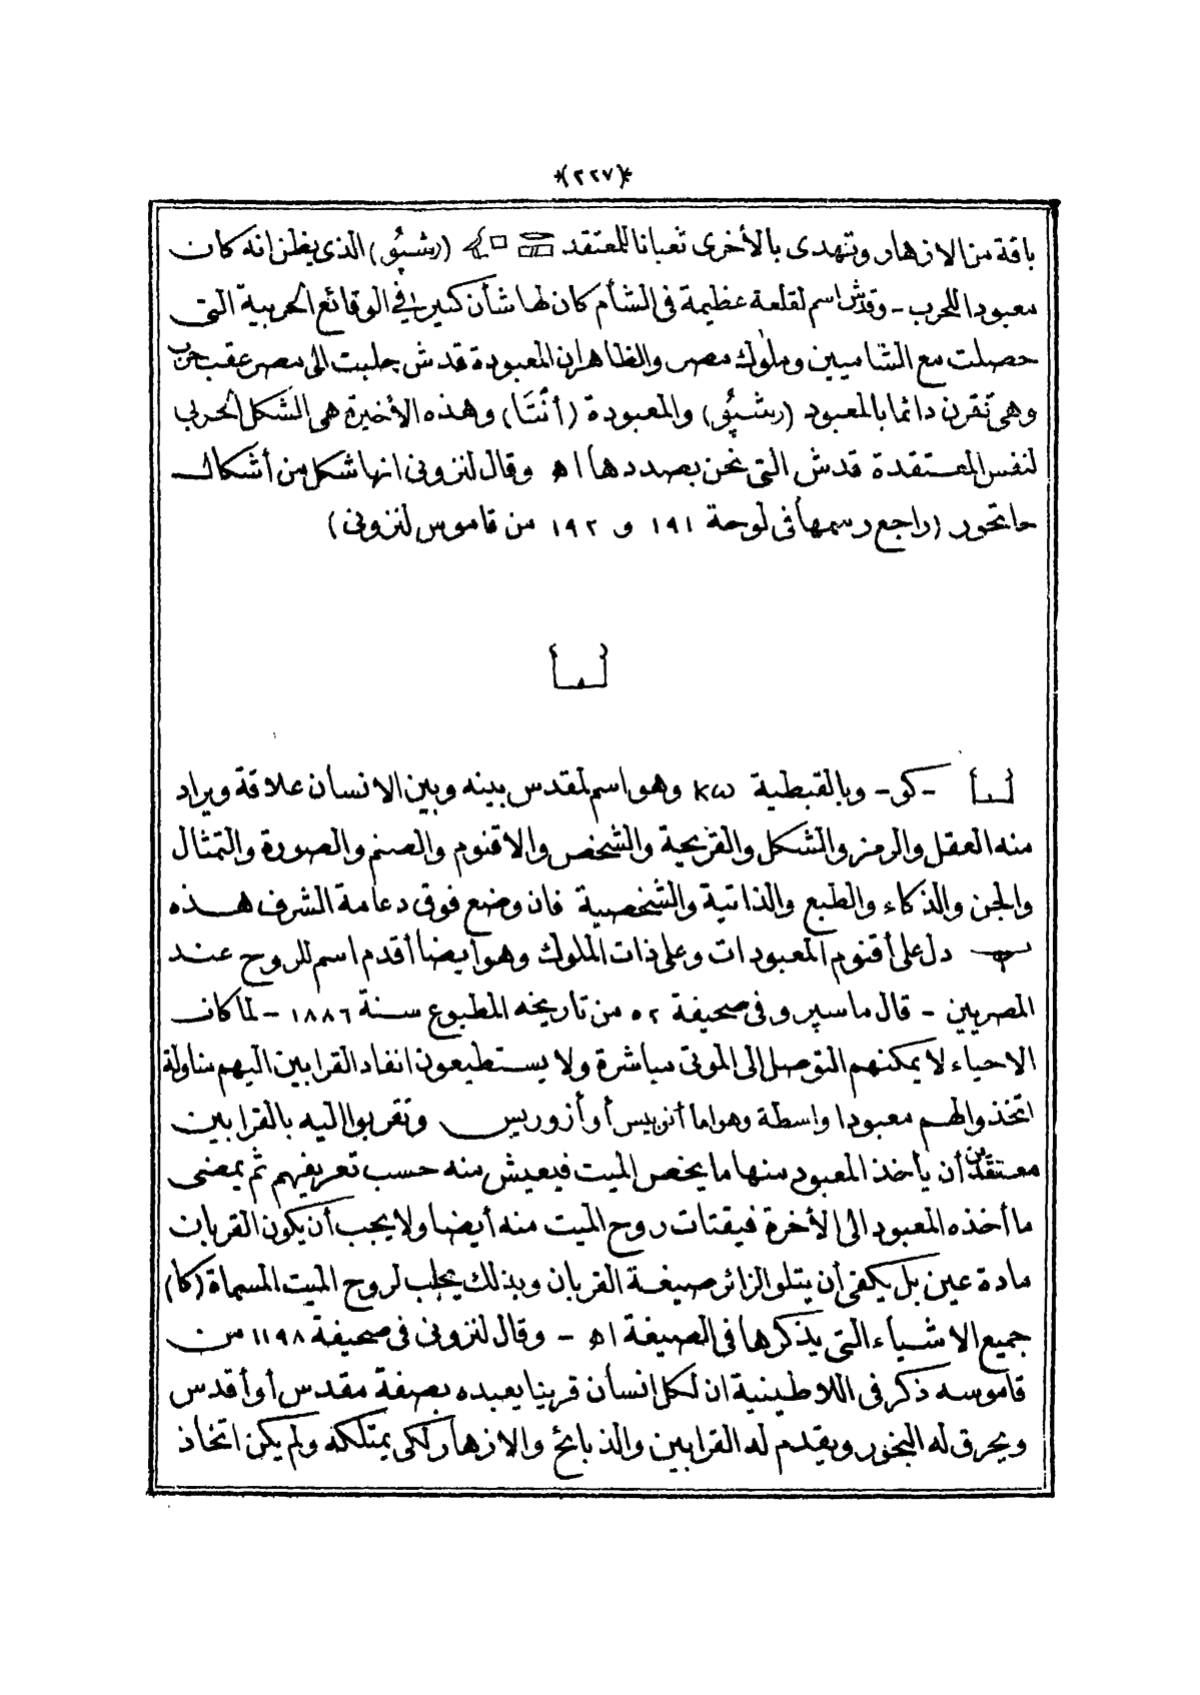 *(٢٢٧)*
باقة من الازهار وتهدى بالأخرى ثعبانا للمعتقد (رشپُو) الذى يظن انه كان
معبودا للحرب - وقدش اسم لقلعة عظيمة فى الشأم كان لها شأن كبير فى الوقائع الحربية التى
حصلت مع الشاميين وملوك مصر والظاهر ان المعبودة قدش جلبت الى مصر عقب حرب
وهى تقرن دائما بالمعبود (رشپُو) والمعبودة (أَنْتَا) وهذه الأخيرة هى الشكل الحربى
لنفس المعتقدة قدش التى نحن بصددها اه وقال لنزونى انها شكل من أشكال
حاتحور (راجع رسمها فى لوحة ١٩١ و ١٩٢ من قاموس لنزونى)
- كو - وبالقبطية κω وهو اسم لمقدس بينه وبين الانسان علاقة ويراد
منه العقل والرمز والشكل والقريحة والشخص والاقنوم والصنم والصورة والتمثال
والجن والذكاء والطبع والذاتية والشخصية فان وضع فوق دعامة الشرف هذه
دل على أقنوم المعبودات وعلى ذات الملوك وهو أيضا أقدم اسم للروح عند
المصريين - قال ماسپرو فى صحيفة ٥٢ من تاريخه المطبوع سنة ١٨٨٦ - لما كان
الاحياء لا يمكنهم التوصل الى الموتى مباشرة ولا يستطيعون انفاد القرابين اليهم مناولة
اتخذوا لهم معبودا واسطة وهو اما أنوبيس أو أزوريس وتقربوا اليه بالقرابين
معتقدين أن يأخذ المعبود منها ما يخص الميت فيعيش منه حسب تعريفهم ثم يمضى
ما أخذه المعبود الى الأخرة فيقتات روح الميت منه أيضا ولا يجب أن يكون القربان
مادة عين بل يكفى أن يتلو الزائر صيغة القربان وبذلك يجلب لروح الميت المسماة (كا)
جميع الاشياء التى يذكرها فى الصيغة اه - وقال لنزونى فى صحيفة ١١٩٨ من
قاموسه ذكر فى اللاطينية ان لكل إنسان قرينا يعبده بصفة مقدس أو أقدس
ويحرق له البخور ويقدم له القرابين والذبائح والازهار لكى يمتلكه ولم يكن اتخاذ